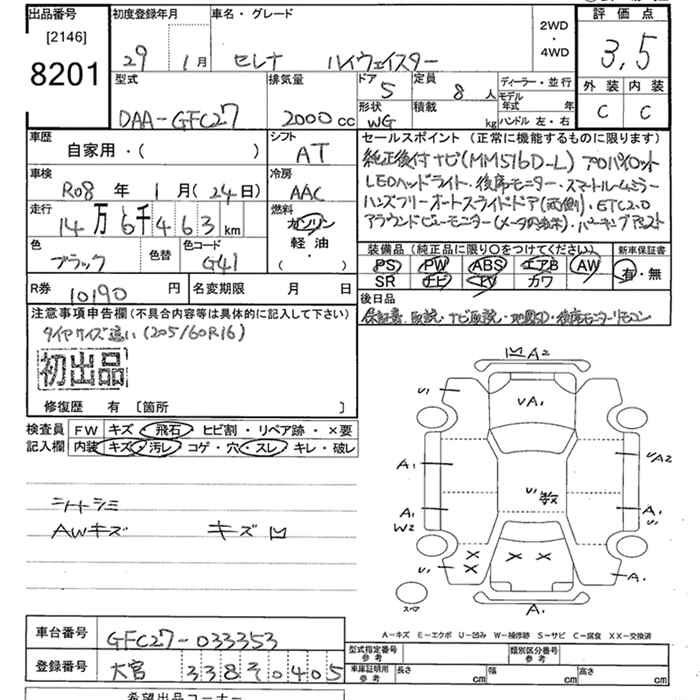 出品番号
[2146]
8201
初度登録年月
29 1月
車名・グレード
セレナ ハイウェイスター
2WD
・
4WD
評価点
3,5
外装 内装
C C
型式
DAA-GFC27
排気量
2000 cc
ドア
5
定員
8人
形状
WG
積載
kg
ディーラー・並行
モデル
年式 年
ハンドル 左・右
車歴
自家用・( )
シフト
AT
車検
R08年 1月(24日)
冷房
AAC
走行
14万6千463km
燃料
ガソリン
軽油
( )
色
ブラック
色替
色コード
G41
R券
10190円
名変期限 月 日
セールスポイント(正常に機能するものに限ります)
純正後付ナビ(MM516D-L) プロパイロット
LEDヘッドライト・後席モニター・スマートルームミラー
ハンズフリーオートスライドドア(両側)・ETC2.0
アラウンドビューモニター(メータ内)・パーキングアシスト
装備品(純正品に限り○をつけてください)
PS PW ABS エアB AW
SR ナビ TV カワ
新車保証書
有・無
後日品
保証書、取説・ナビ取説・地図SD・後席モニターリモコン
注意事項申告欄(不具合内容等は具体的に記入して下さい)
タイヤサイズ違い(205/60R16)
初出品
修復歴 有 〔箇所 〕
検査員
記入欄
FW キズ・飛石・ヒビ割・リペア跡・×要
内装 キズ・汚レ・コゲ・穴・スレ・キレ・破レ
シートシミ
AWキズ キズ凹
車台番号
GFC27-033353
登録番号
大宮 338 そ 0405
希望出品コーナー
凹 A2
U1
UA1
A1
UA2
U キズ
A1
W2
A1
U1
× × × ×
U1
A1
A1
スペア
A－キズ E－エクボ U－凹み W－補修跡 S－サビ C－腐食 XX－交換済
型式指定番号
参考
類別区分番号
参考
車庫証明用
参考
長さ cm 幅 cm 高さ cm